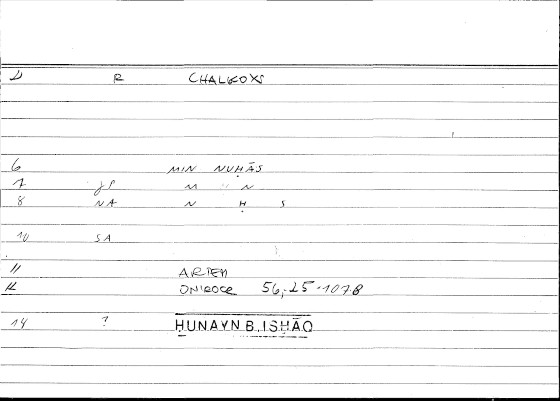 D R CHALKOXS
6 MIN NUḤĀS
7 JP M N
8 NA N Ḥ S
10 SA
11 ARTEM
12 ONIROCR 56,25-107.8
14 ? ḤUNAYN B. ISḤĀQ